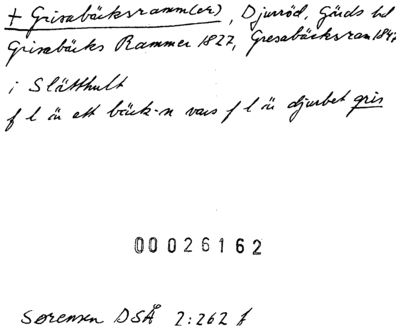 + Grisabäcksramm(er), Djurröd, Gärds hd
Grisabäcks Rammer 1827, Gresabäcksram 184
i Slätthult
f l är ett bäck-n vars f l är djurbet gris
00026162
Sørensen DSÅ 2:262 f